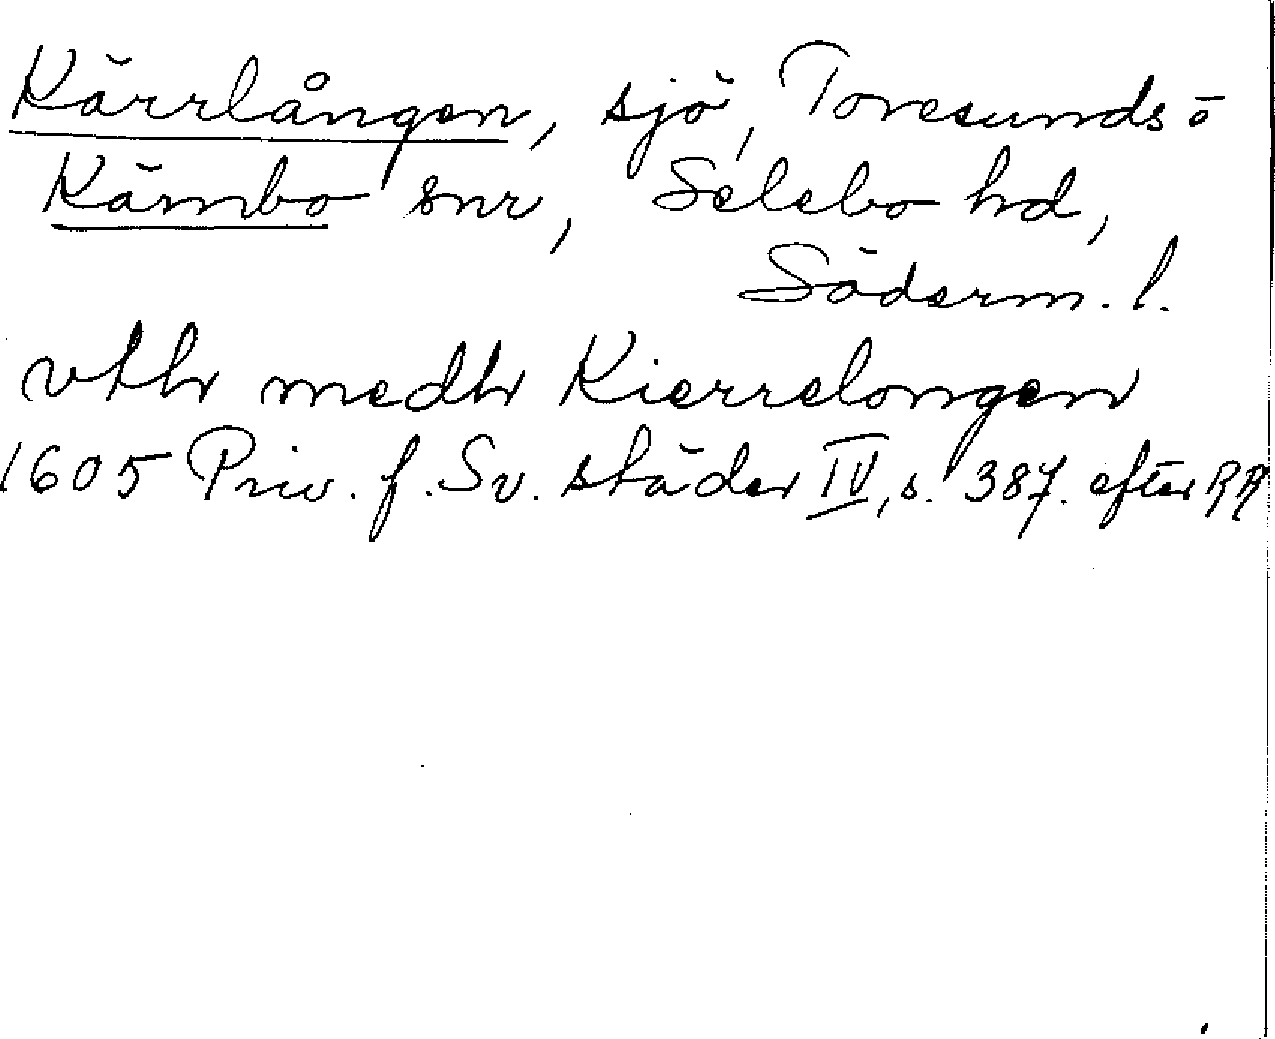 Kärrlången, sjö, Toresunds o
Kärnbo snr, Selebo hd,
Söderm. l.
vthr medhr Kierrelongen
1605 Priv. f. Sv. städer IV, s. 387. efter RR